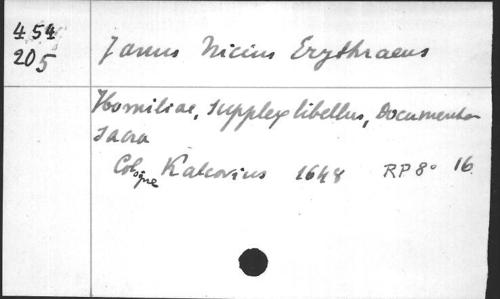 454
205
Janus Nicius Erythraeus
Homiliae, supplex libellus, Documenta
sacra
Cologne Kalcovius 1648 RP 8° 16